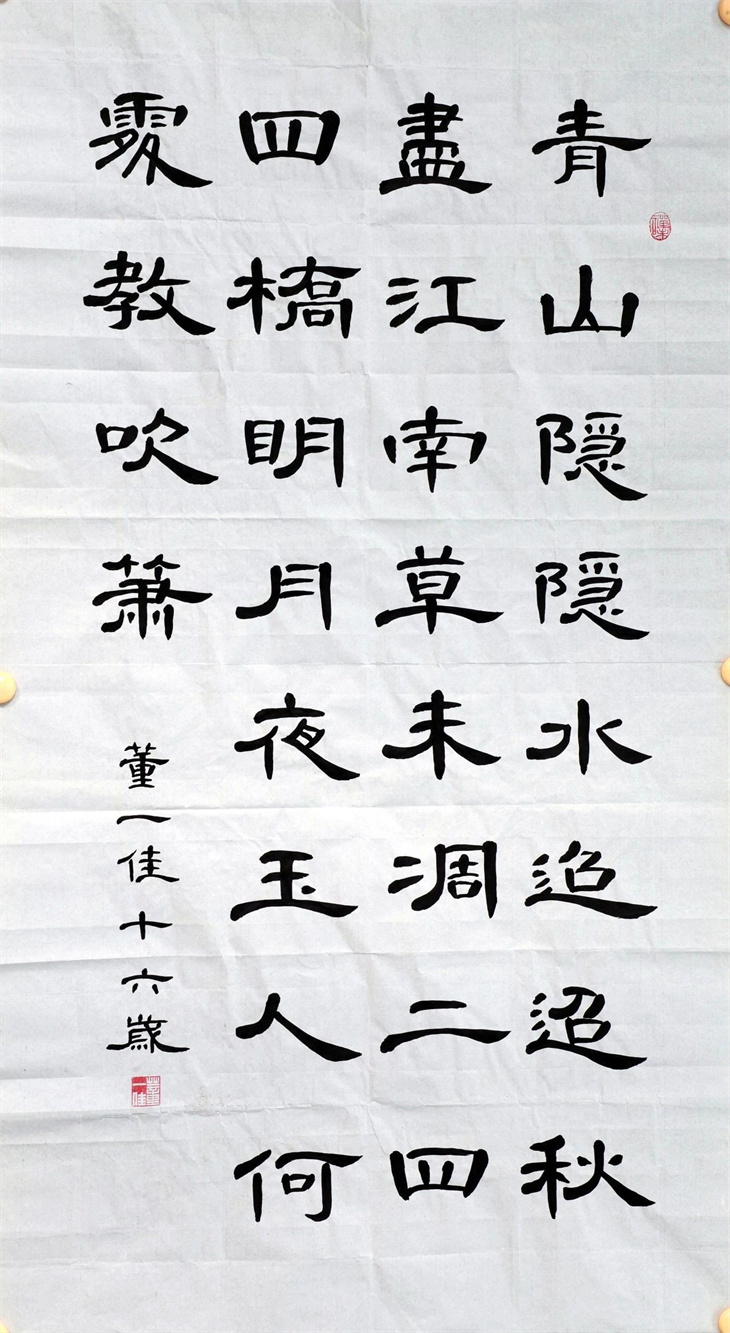 青山隐隐水迢迢秋
盡江南草未凋二四
四橋明月夜玉人何
處教吹簫
董一佳十六歲
董一佳